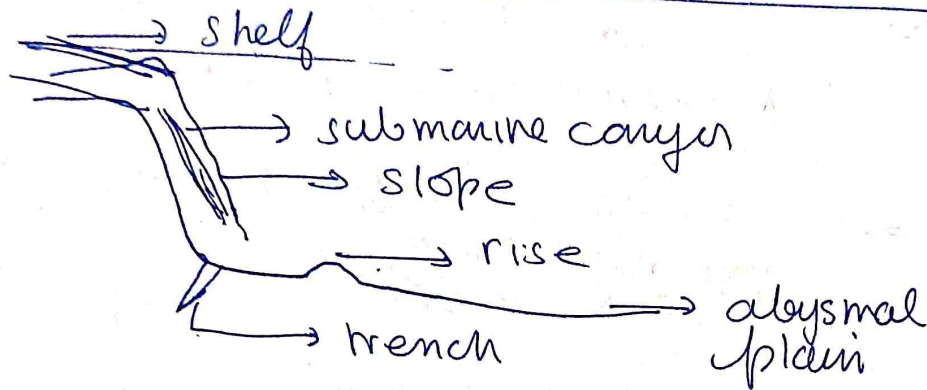 shelf
submarine canyon
slope
rise
abysmal
plain
trench